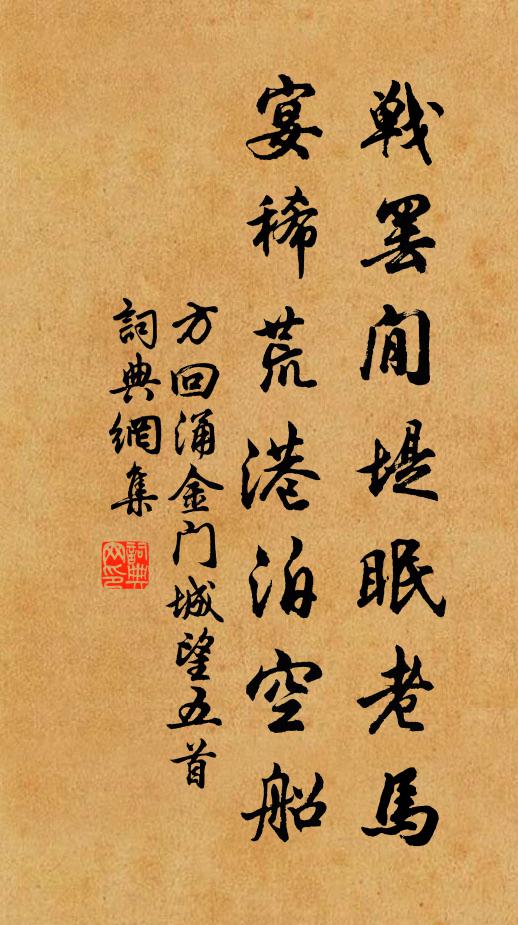 戦罢閒堤眠老馬
宴稀荒港泊空船
方回涌金门城望五首
詞典網集
詞典網印